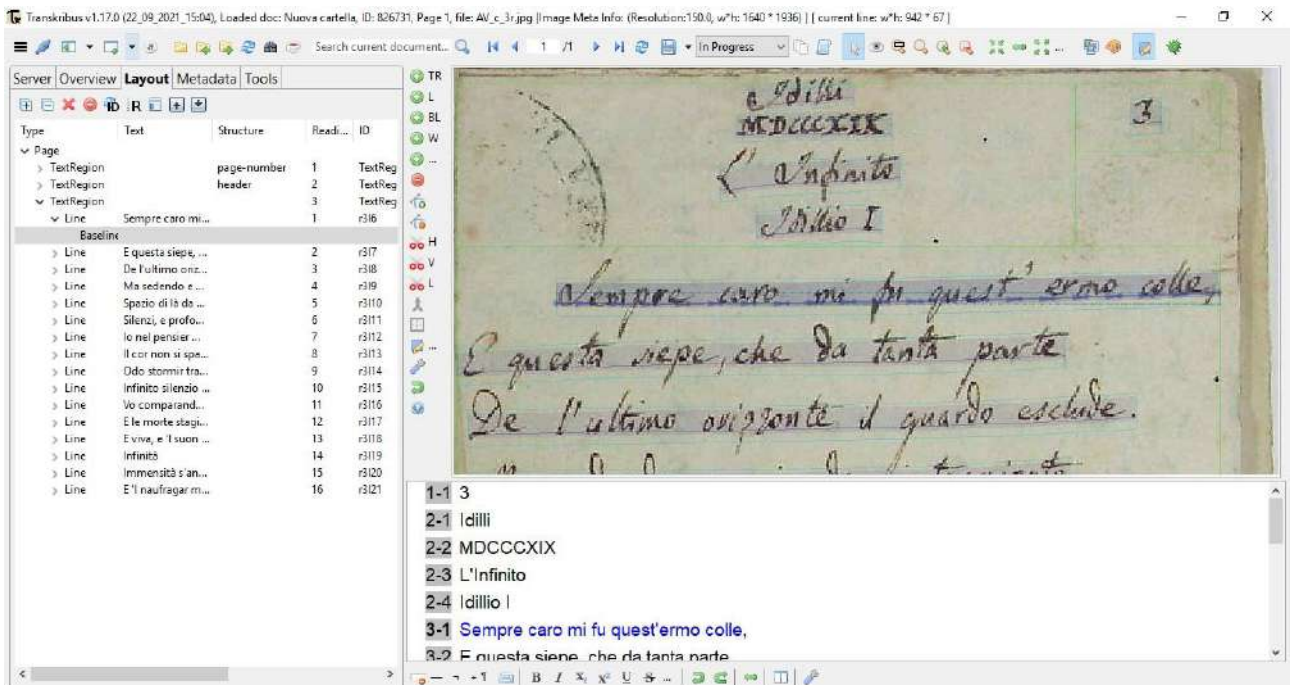 Transkribus v1.17.0 (22_09_2021_15:04), Loaded doc: Nuova cartella, ID: 826731, Page 1, file: AV_c_3r.jpg |Image Meta Info: (Resolution:150.0, w*h: 1640 * 1936) | [ current line: w*h: 942 * 67 ]
Search current document... 1 /1 In Progress
Server Overview Layout Metadata Tools
ID R
Type Text Structure Readi... ID
Page
TextRegion page-number 1 TextReg
TextRegion header 2 TextReg
TextRegion 3 TextReg
Line Sempre caro mi... 1 r3l6
Baseline
Line E questa siepe, ... 2 r3l7
Line De l'ultimo oriz... 3 r3l8
Line Ma sedendo e ... 4 r3l9
Line Spazio di là da ... 5 r3l10
Line Silenzi, e profo... 6 r3l11
Line Io nel pensier ... 7 r3l12
Line Il cor non si spa... 8 r3l13
Line Odo stormir tra... 9 r3l14
Line Infinito silenzio ... 10 r3l15
Line Vo comparand... 11 r3l16
Line E le morte stagi... 12 r3l17
Line E viva, e 'l suon ... 13 r3l18
Line Infinità 14 r3l19
Line Immensità s'an... 15 r3l20
Line E 'l naufragar m... 16 r3l21
TR
L
BL
W
...
H
V
L
...
Idilli
MDCCCXIX
3
L'Infinito
Idillio I
Sempre caro mi fu quest'ermo colle,
E questa siepe, che da tanta parte
De l'ultimo orizzonte il guardo esclude.
1-1 3
2-1 Idilli
2-2 MDCCCXIX
2-3 L'Infinito
2-4 Idillio I
3-1 Sempre caro mi fu quest'ermo colle,
3-2 E questa siepe, che da tanta parte
B I X₁ X² U S ...